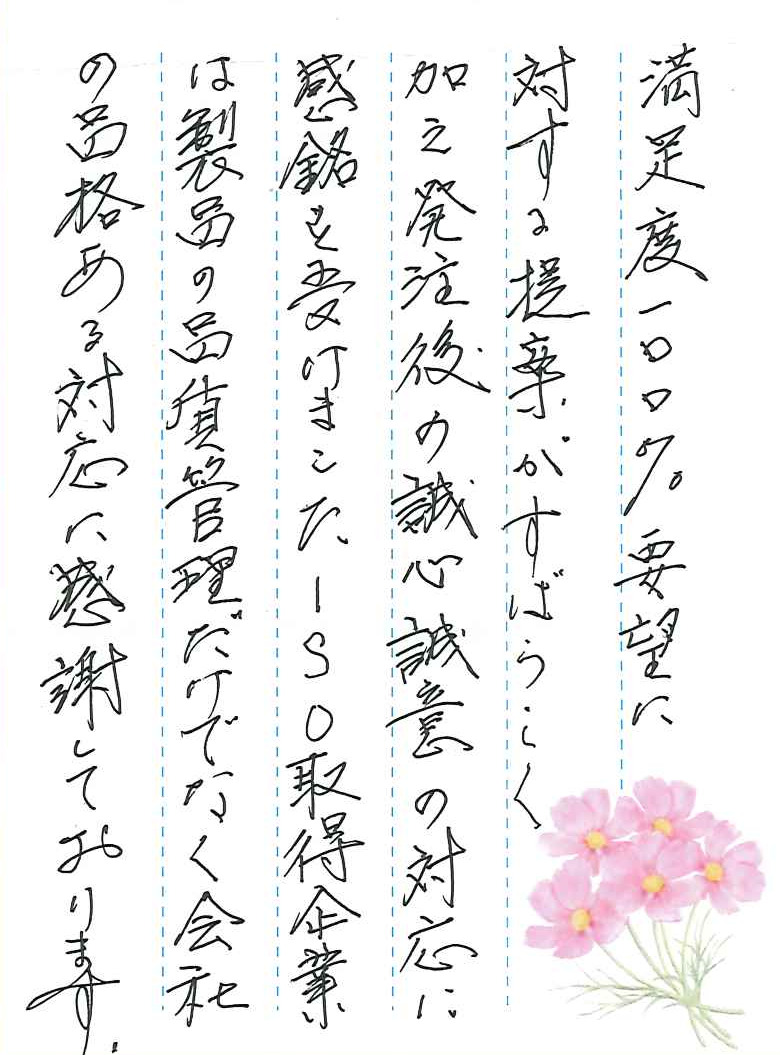 満足度一〇〇%。要望に
対する提案がすばらしく
加え発注後の誠心誠意の対応に
感銘を受けました。ISO取得企業
は製品の品質管理だけでなく会社
の品格ある対応に感謝しております。